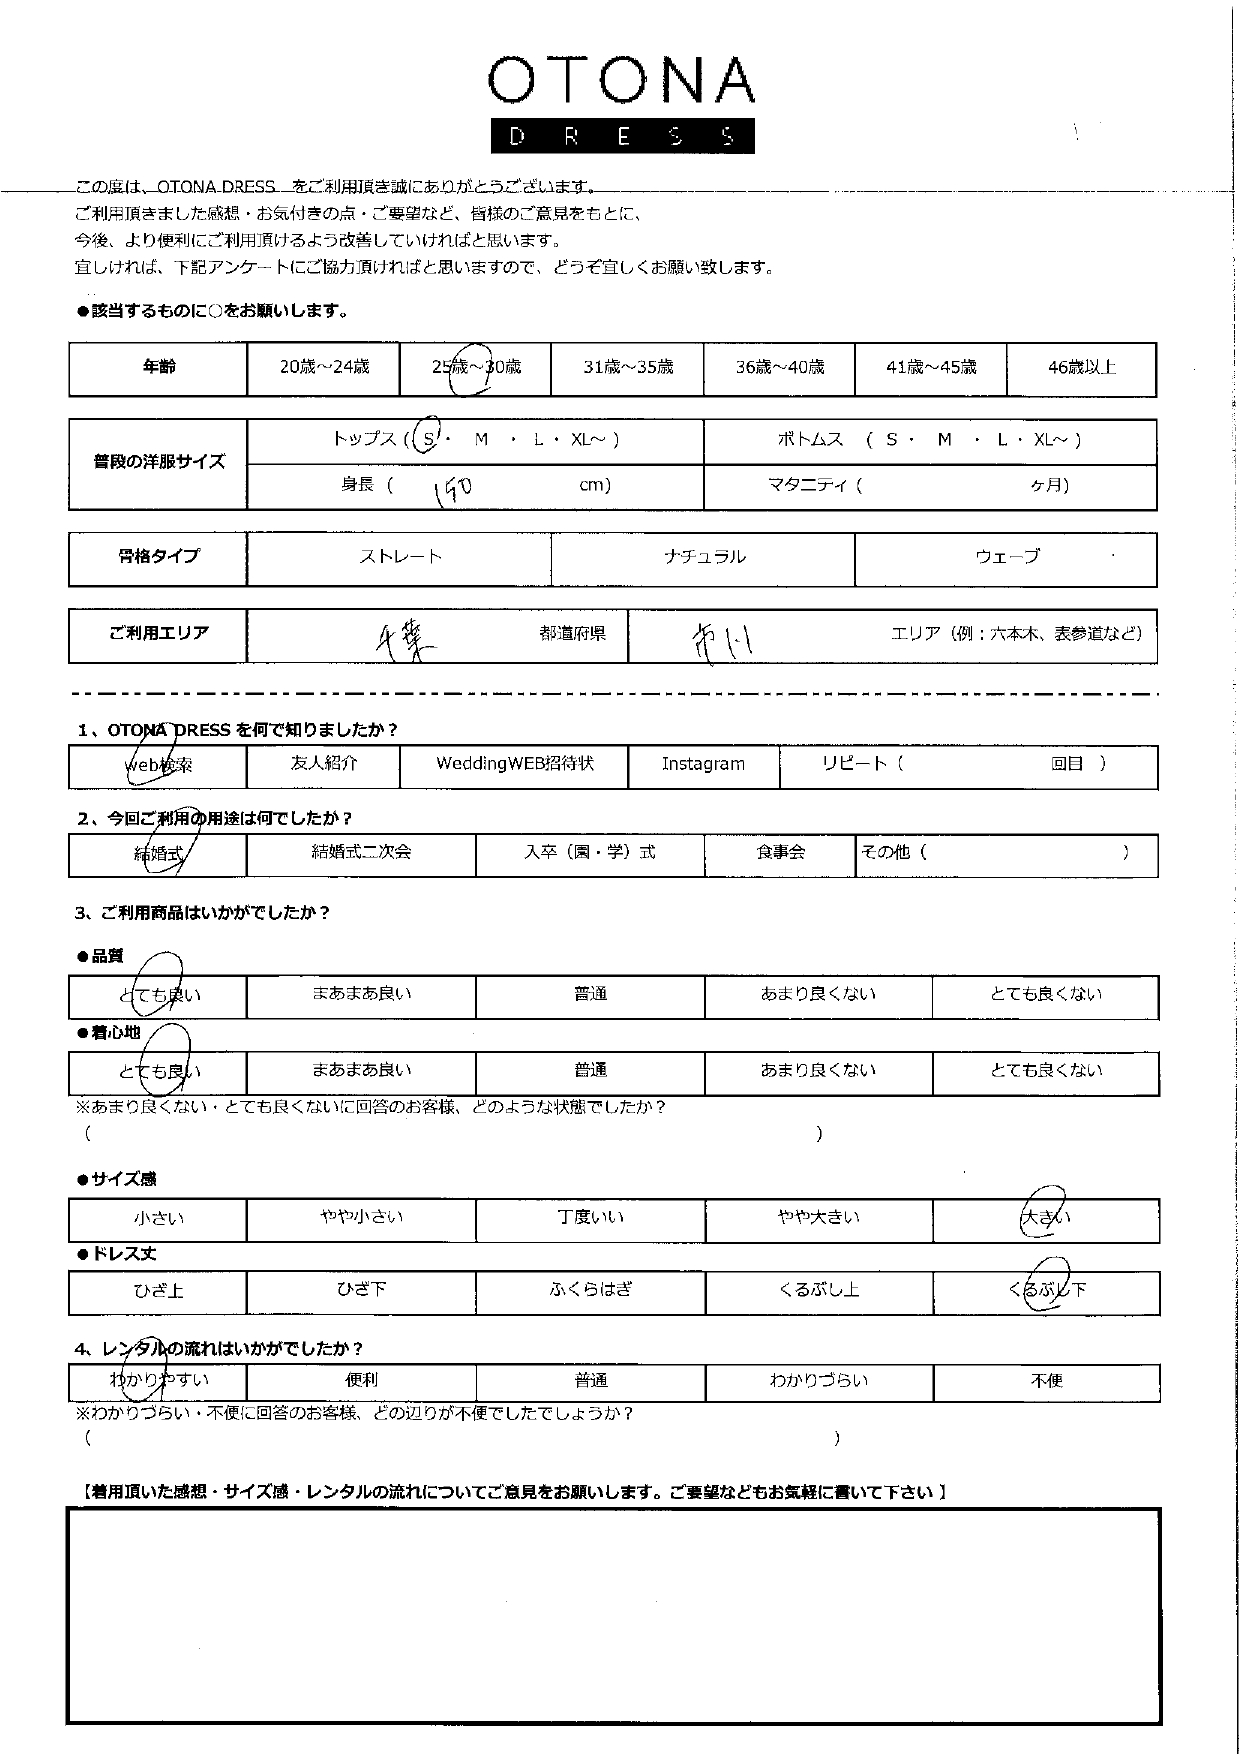 OTONA
DRESS
この度は、OTONA DRESS をご利用頂き誠にありがとうございます。
ご利用頂きました感想・お気付きの点・ご要望など、皆様のご意見をもとに、
今後、より便利にご利用頂けるよう改善していければと思います。
宜しければ、下記アンケートにご協力頂ければと思いますので、どうぞ宜しくお願い致します。
●該当するものに○をお願いします。
年齢 20歳～24歳 25歳～30歳 31歳～35歳 36歳～40歳 41歳～45歳 46歳以上
普段の洋服サイズ トップス ( S ・ M ・ L ・ XL～ ) ボトムス ( S ・ M ・ L ・ XL～ )
身長 ( 150 cm) マタニティ ( ヶ月)
骨格タイプ ストレート ナチュラル ウェーブ
ご利用エリア 千葉 都道府県 市川 エリア（例：六本木、表参道など）
1、OTONA DRESS を何で知りましたか？
web検索 友人紹介 WeddingWEB招待状 Instagram リピート（ 回目 ）
2、今回ご利用の用途は何でしたか？
結婚式 結婚式二次会 入卒（園・学）式 食事会 その他（ ）
3、ご利用商品はいかがでしたか？
●品質
とても良い まあまあ良い 普通 あまり良くない とても良くない
●着心地
とても良い まあまあ良い 普通 あまり良くない とても良くない
※あまり良くない・とても良くないに回答のお客様、どのような状態でしたか？
（ ）
●サイズ感
小さい やや小さい 丁度いい やや大きい 大きい
●ドレス丈
ひざ上 ひざ下 ふくらはぎ くるぶし上 くるぶし下
4、レンタルの流れはいかがでしたか？
わかりやすい 便利 普通 わかりづらい 不便
※わかりづらい・不便に回答のお客様、どの辺りが不便でしたでしょうか？
（ ）
【着用頂いた感想・サイズ感・レンタルの流れについてご意見をお願いします。ご要望などもお気軽に書いて下さい 】